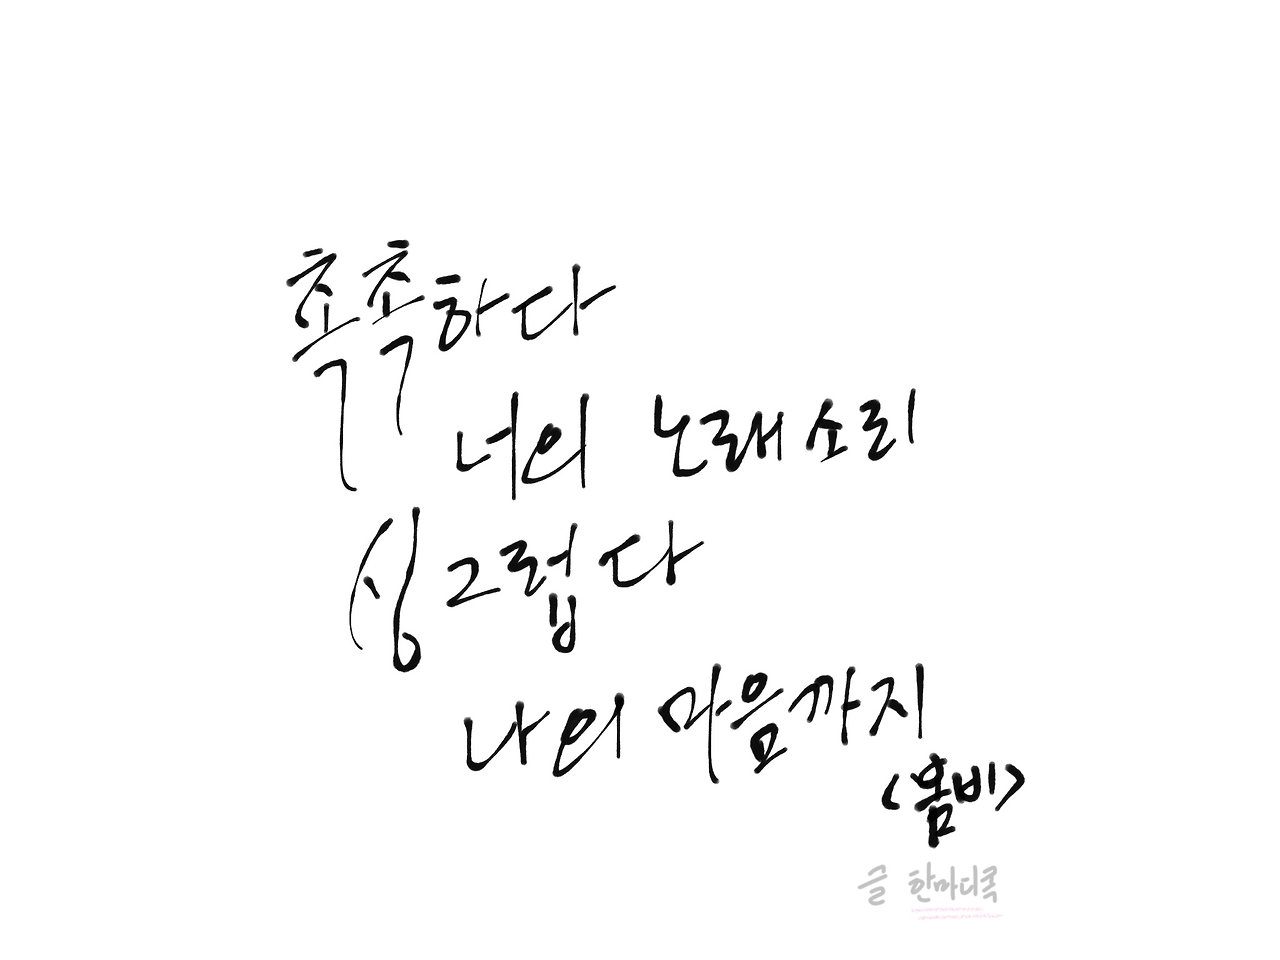 촉촉하다
너의 노래소리
싱그럽다
나의 마음까지
<봄비>
글 한마디쿡